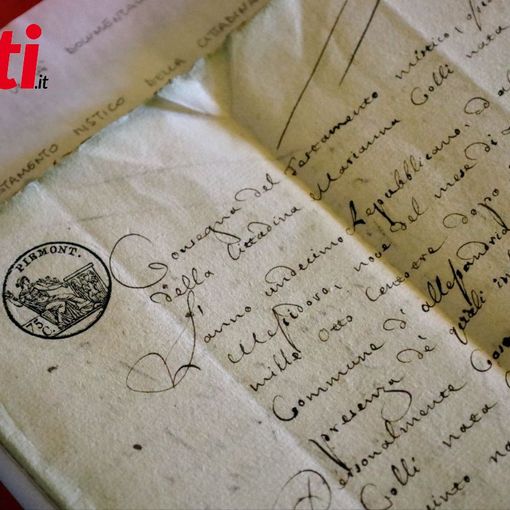 ti.it
DOCUMENTAL
TESTAMENTO MISTICO DELLA CITTADINA
PIEMONT.
75 C.
Consegna del Testamento mistico,
della Cittadina Marianna Golli nata
L'anno undecimo Repubblicano, ed al
Messidoro, nove del mese di
mille otto cento tre dopo
Commune d'Alessandria
presenza de quali in
Personalmente
Golli nata
quinto na